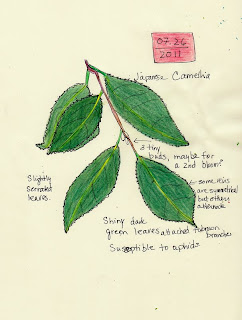 07.26
2011
Japanese Camellia
2 tiny
buds, maybe for
a 2nd bloom?
Slightly
serrated
leaves.
some
are symmetrical
but others
alternate
Shiny dark
green leaves attached
branches
Susceptible to aphids